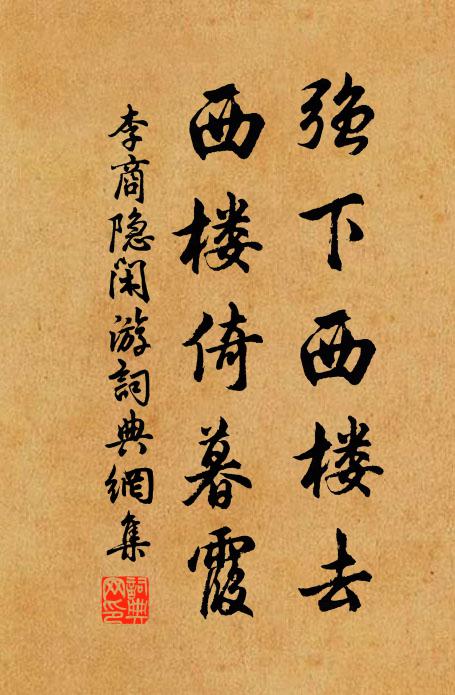 强下西楼去
西楼倚暮霞
李商隐闲游詞典網集
詞典网印